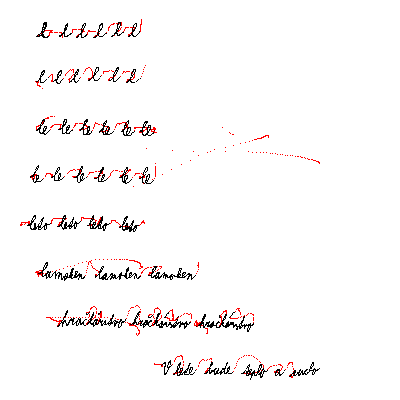 l l l l l l
l l l l l l
le le le le le le
le le le le le le
leto leto leto leto
lamoken lamoken lamoken
hračkárstvo hračkárstvo hračkárstvo
V lete bude teplo a sucho